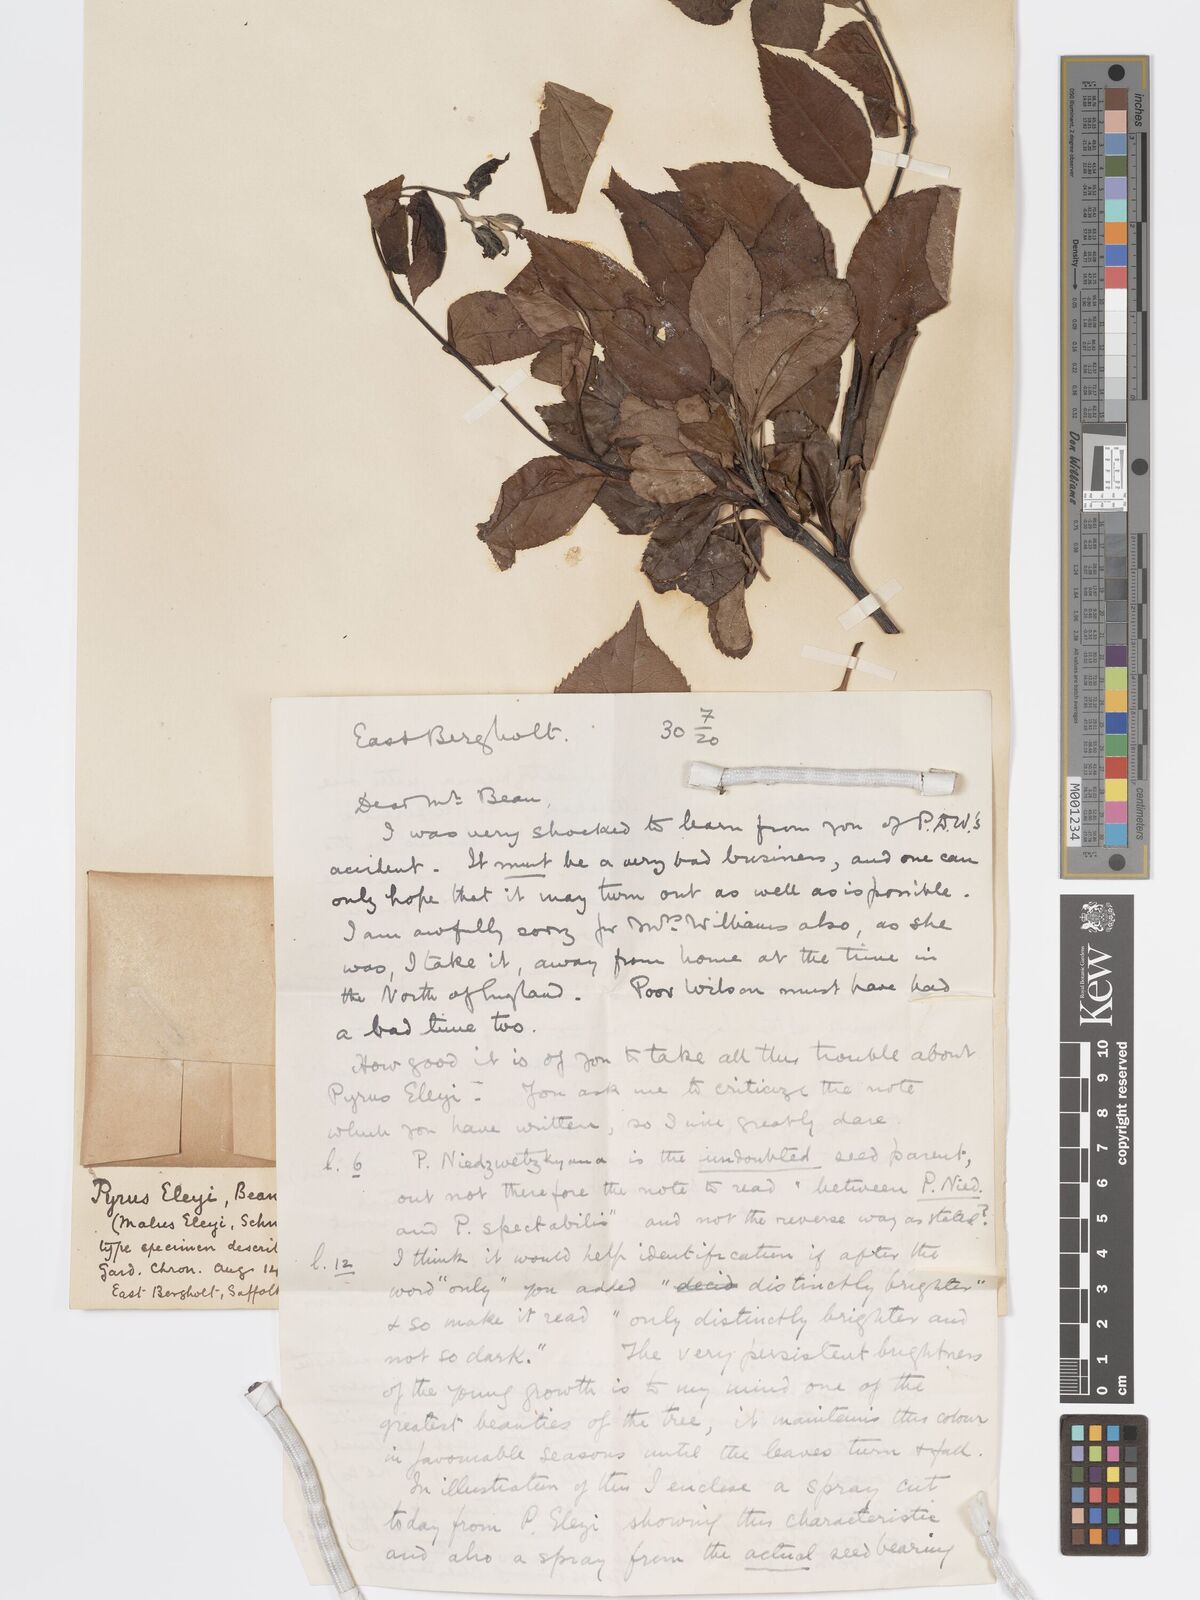 East Bergholt.
30 7/20
Dear Mr. Bean,
I was very shocked to learn from you of P.D.W.'s
accident. It must be a very bad business, and one can
only hope that it may turn out as well as is possible.
I am awfully sorry for Mrs. Williams also, as she
was, I take it, away from home at the time in
the North of England. Poor Wilson must have had
a bad time too.
How good it is of you to take all this trouble about
Pyrus Eleyi - You ask me to criticize the note
which you have written, so I will greatly dare.
l. 6 P. Niedzwetzkyana is the undoubted seed parent,
ought not therefore the note to read "between P. Nied.
and P. spectabilis" and not the reverse way as stated?
l. 12 I think it would help identification if after the
word "only" you added "decid distinctly brighter"
& so make it read "only distinctly brighter and
not so dark." The very persistent brightness
of the young growth is to my mind one of the
greatest beauties of the tree, it maintains this colour
in favourable seasons until the leaves turn & fall.
In illustration of this I enclose a spray cut
today from P. Eleyi showing this characteristic
and also a spray from the actual seed bearing
Pyrus Eleyi, Bean
(Malus Eleyi, Schn
type specimen descri
Gard. Chron. Aug. 14
East Bergholt, Suffolk
inches
Density
Don Williams
M001234
Royal Botanic Gardens
Kew
copyright reserved
0 1 2 3 4 5 6 7 8 9 10
cm